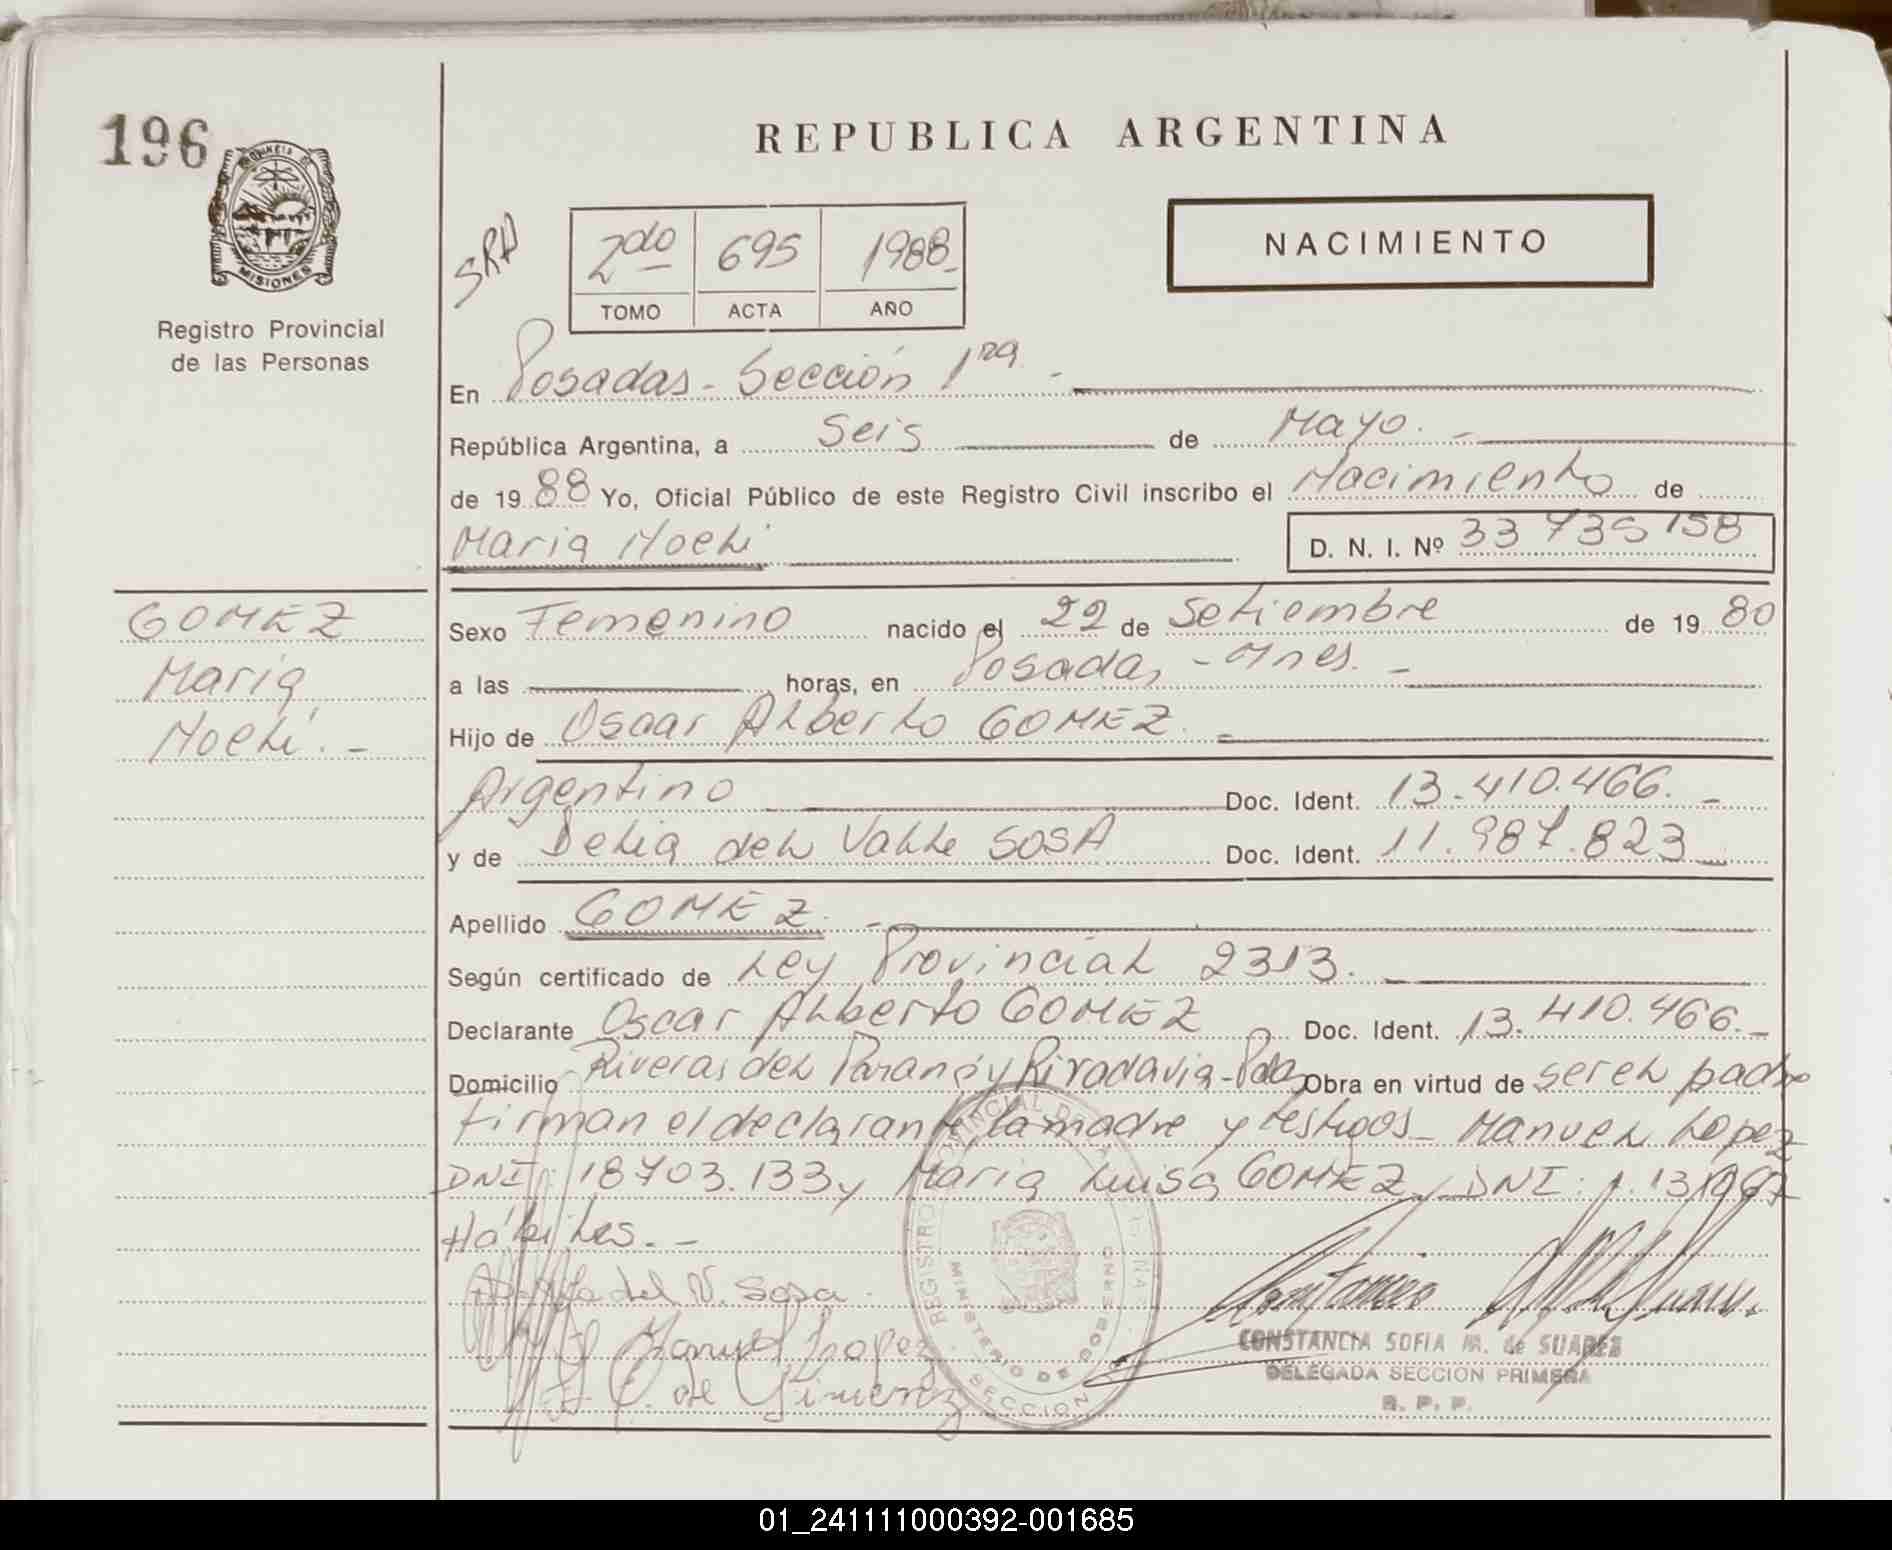 196
PROVINCIA DE
MISIONES
Registro Provincial
de las Personas
REPUBLICA ARGENTINA
SRH
2do 695 1988
TOMO ACTA AÑO
NACIMIENTO
En Posadas - Sección 1ra. -
República Argentina, a Seis de Mayo. -
de 1988 Yo, Oficial Público de este Registro Civil inscribo el Nacimiento de
Maria Noeli
D. N. I. Nº 33 735 158
GOMEZ
Maria
Noeli. -
Sexo Femenino nacido el 22 de Setiembre de 1980
a las horas, en Posadas - Mnes. -
Hijo de Oscar Alberto GOMEZ. -
Argentino Doc. Ident. 13.410.466. -
y de Delia del Valle SOSA Doc. Ident. 11.987.823 -
Apellido GOMEZ. -
Según certificado de Ley Provincial 2313.
Declarante Oscar Alberto GOMEZ Doc. Ident. 13.410.466. -
Domicilio Riveras del Paraná y Rivadavia - Pdas Obra en virtud de ser el padre
Firman el declarante, la madre y testigos - Manuel Lopez
DNI: 18703.133 y Maria Luisa GOMEZ, DNI:
Hábiles. -
Delia del V. Sosa.
Manuel Lopez
de Gimenez
REGISTRO PROVINCIAL DE LAS PERSONAS
MINISTERIO DE GOBIERNO
SECCION
CONSTANCIA SOFIA M. de SUARES
DELEGADA SECCION PRIMERA
R. P. P.
01_241111000392-001685